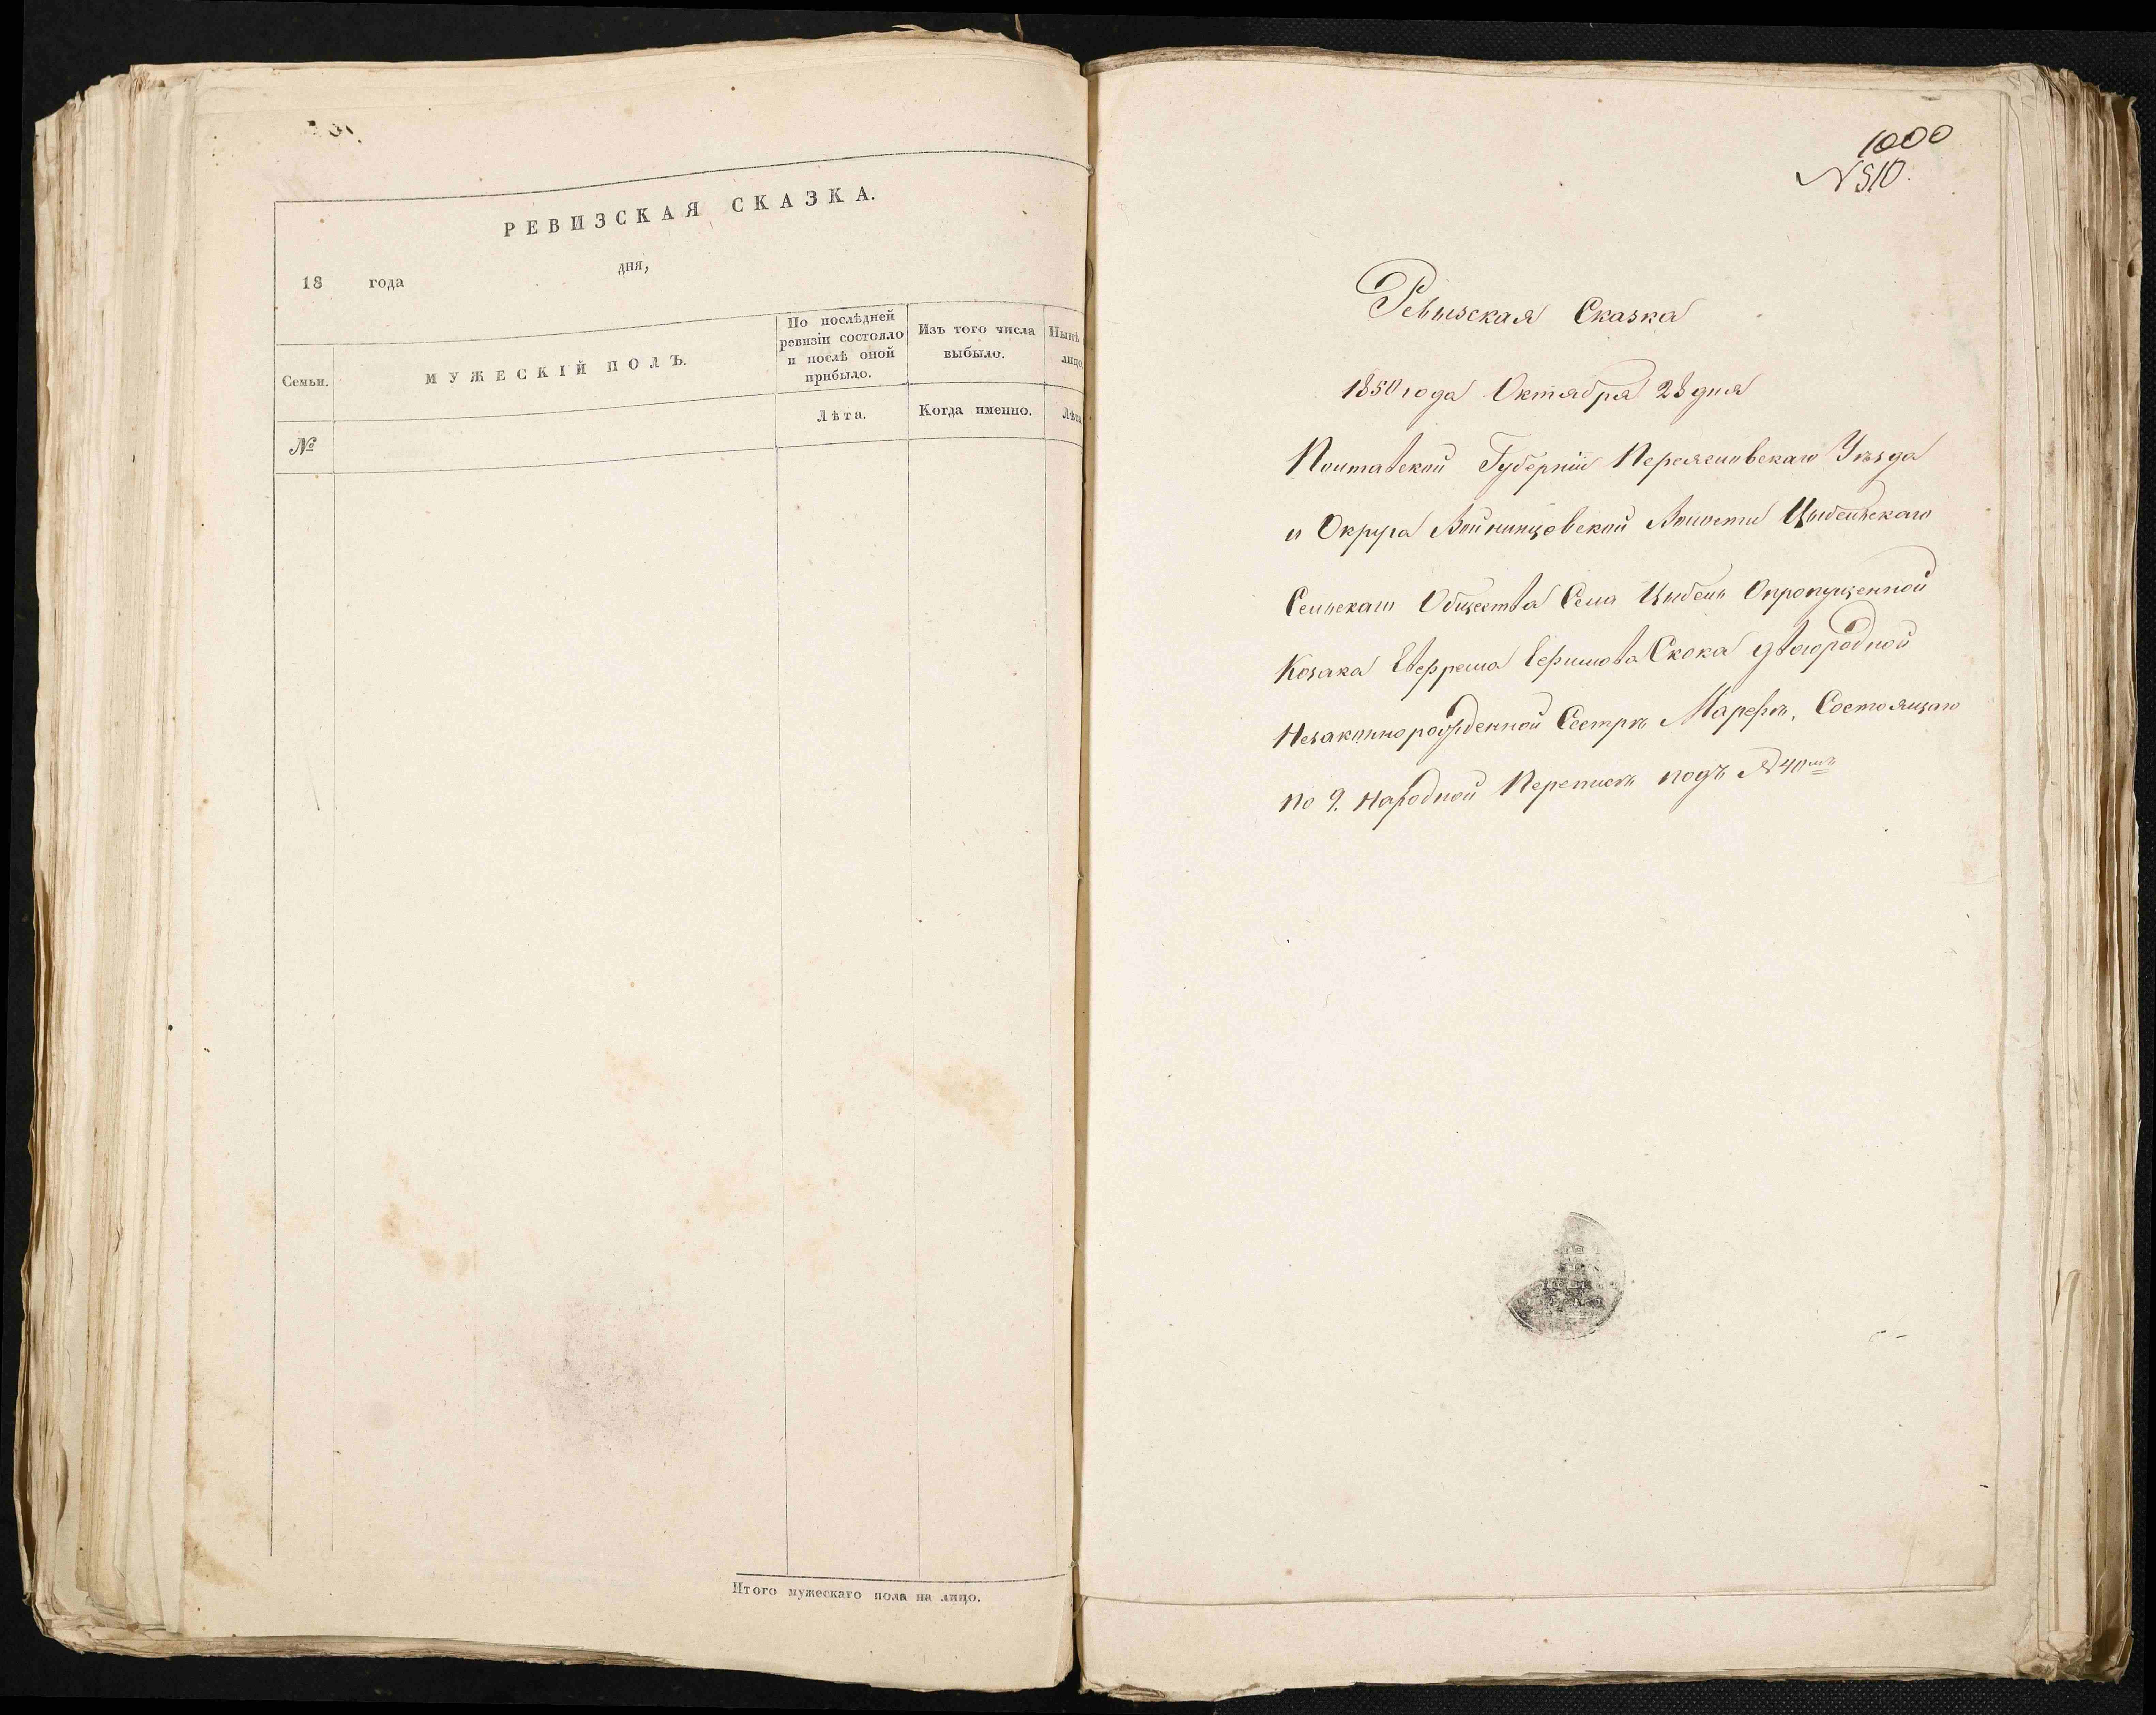 РЕВИЗСКАЯ СКАЗКА.
18 года дня,
Семьи.
МУЖЕСКІЙ ПОЛЪ.
По послѣдней
ревизіи состояло
и послѣ оной
прибыло.
Изъ того числа
выбыло.
Нынѣ
лицо
Лѣта.
Когда именно.
Лѣта
№
Итого мужескаго пола на лицо.
1000
№ 510.
Ревизская Сказка
1850 года Октября 28 дня
Полтавской Губерніи Переяславскаго Уѣзда
и Округа Войнинцовской Волости Цыбельскаго
Сельскаго Общества Села Цыбель Опропущенной
Козака Скока двоюродной
Незаконнорожденной Сестрѣ Марефѣ, Состоящаго
по 9. Народной Переписѣ подъ №